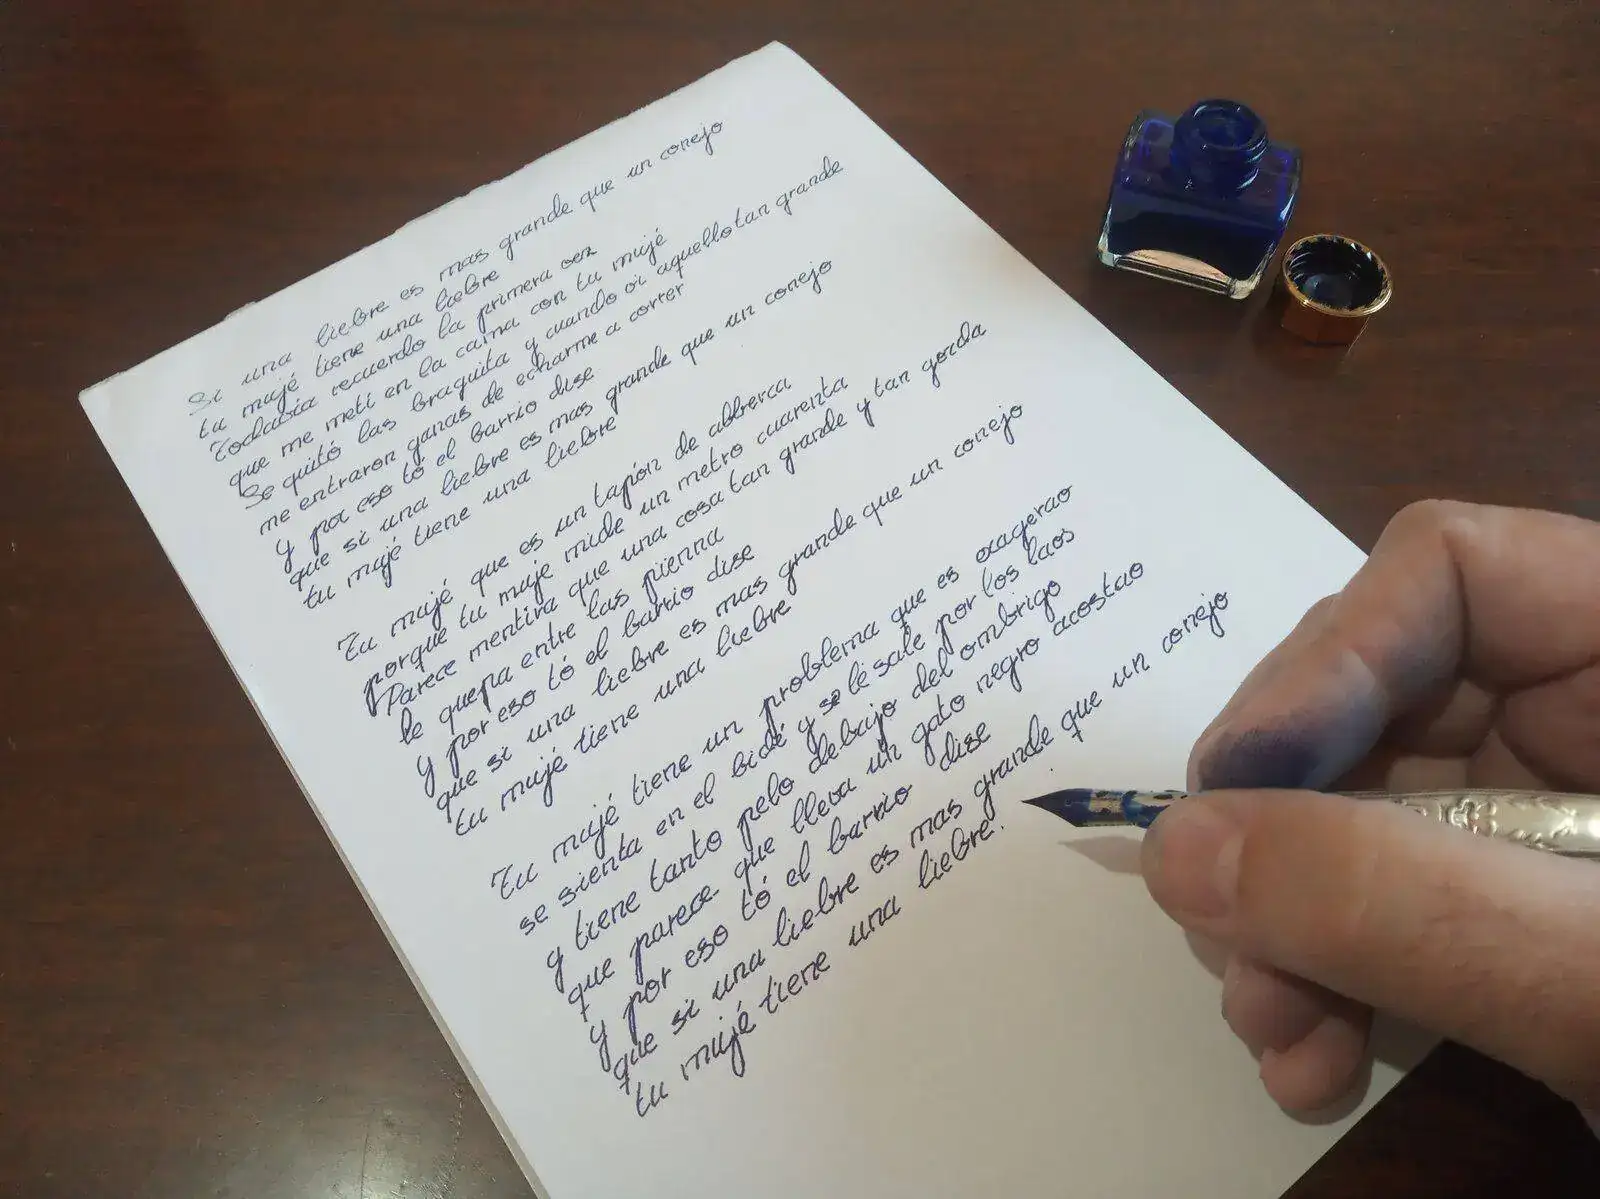 Si una liebre es mas grande que un conejo
tu mujé tiene una liebre
Todavía recuerdo la primera vez
que me metí en la cama con tu mujé
Se quitó las braguita y cuando vi aquello tan grande
me entraron ganas de echarme a correr
y por eso tó el barrio dise
que si una liebre es mas grande que un conejo
tu mujé tiene una liebre
Tu mujé que es un tapón de abberca
porque tu muje mide un metro cuarenta
Parece mentira que una cosa tan grande y tan gorda
le quepa entre las pienna
y por eso tó el barrio dise
que si una liebre es mas grande que un conejo
tu mujé tiene una liebre
Tu mujé tiene un problema que es exagerao
se sienta en el bidé y se lé sale por los laos
y tiene tanto pelo debajo del ombrigo
que parece que lleva un gato negro acostao
y por eso tó el barrio dise
que si una liebre es mas grande que un conejo
tu mujé tiene una liebre.